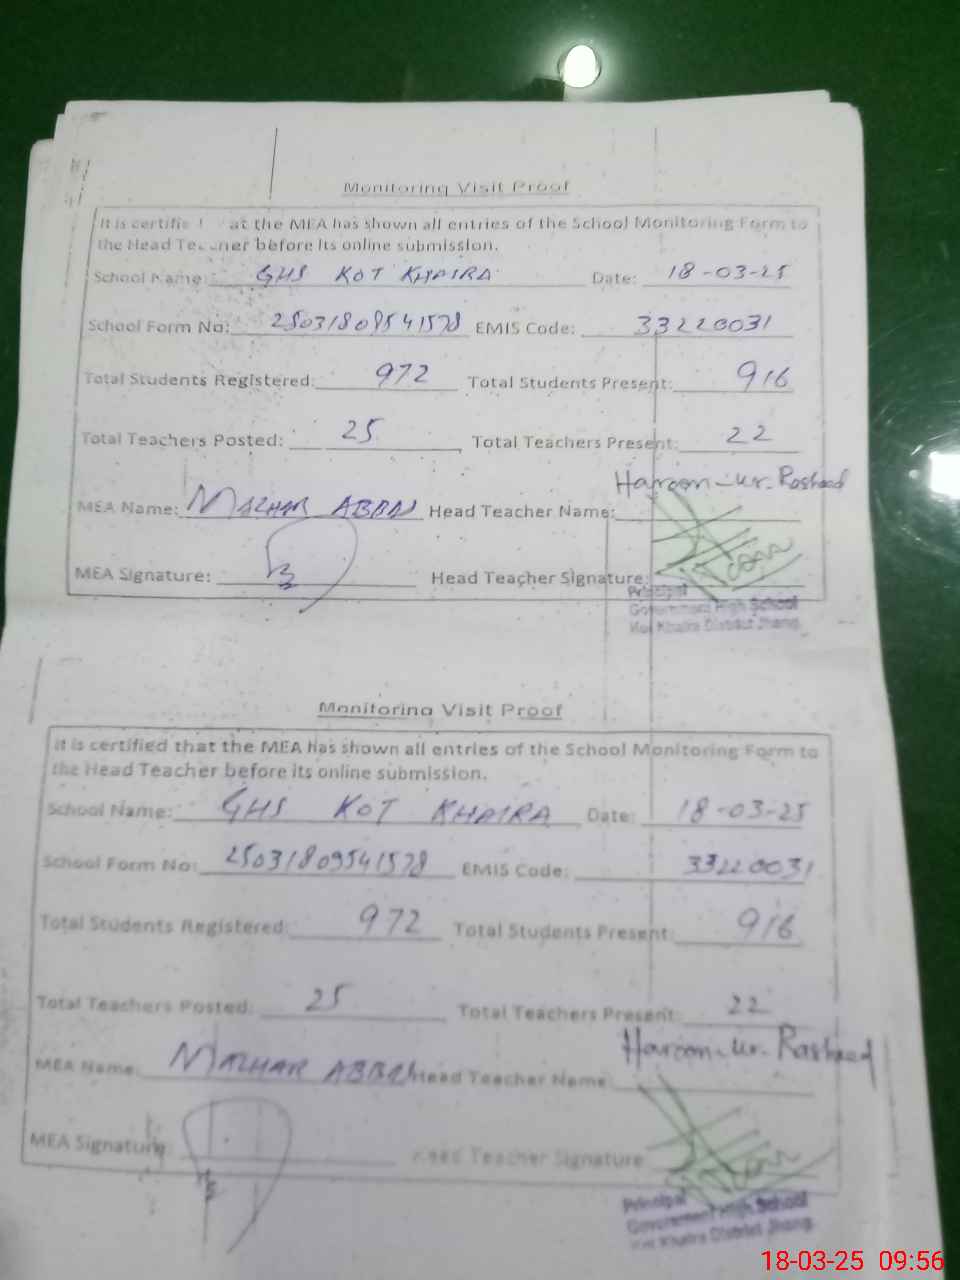 Monitoring Visit Proof
It is certifie at the MEA has shown all entries of the School Monitoring Form to
the Head Teacher before its online submission.
School Name: GHS KOT KHAIRA Date: 18-03-25
School Form No: 25031809541578 EMIS Code: 33220031
Total Students Registered: 972 Total Students Present: 916
Total Teachers Posted: 25 Total Teachers Present: 22
Haroon-ur-Rasheed
MEA Name: MAZHAR ABBAS Head Teacher Name:
MEA Signature: Head Teacher Signature:
Principal
Government High School
Kot Khaira District Jhang.
Monitoring Visit Proof
It is certified that the MEA has shown all entries of the School Monitoring Form to
the Head Teacher before its online submission.
School Name: GHS KOT KHAIRA Date: 18-03-25
School Form No: 25031809541578 EMIS Code: 33220031
Total Students Registered: 972 Total Students Present: 916
Total Teachers Posted: 25 Total Teachers Present: 22
Haroon-ur-Rasheed
MEA Name: MAZHAR ABBAS Head Teacher Name:
MEA Signature: Head Teacher Signature
Principal
Government High School
Kot Khaira District Jhang.
18-03-25 09:56